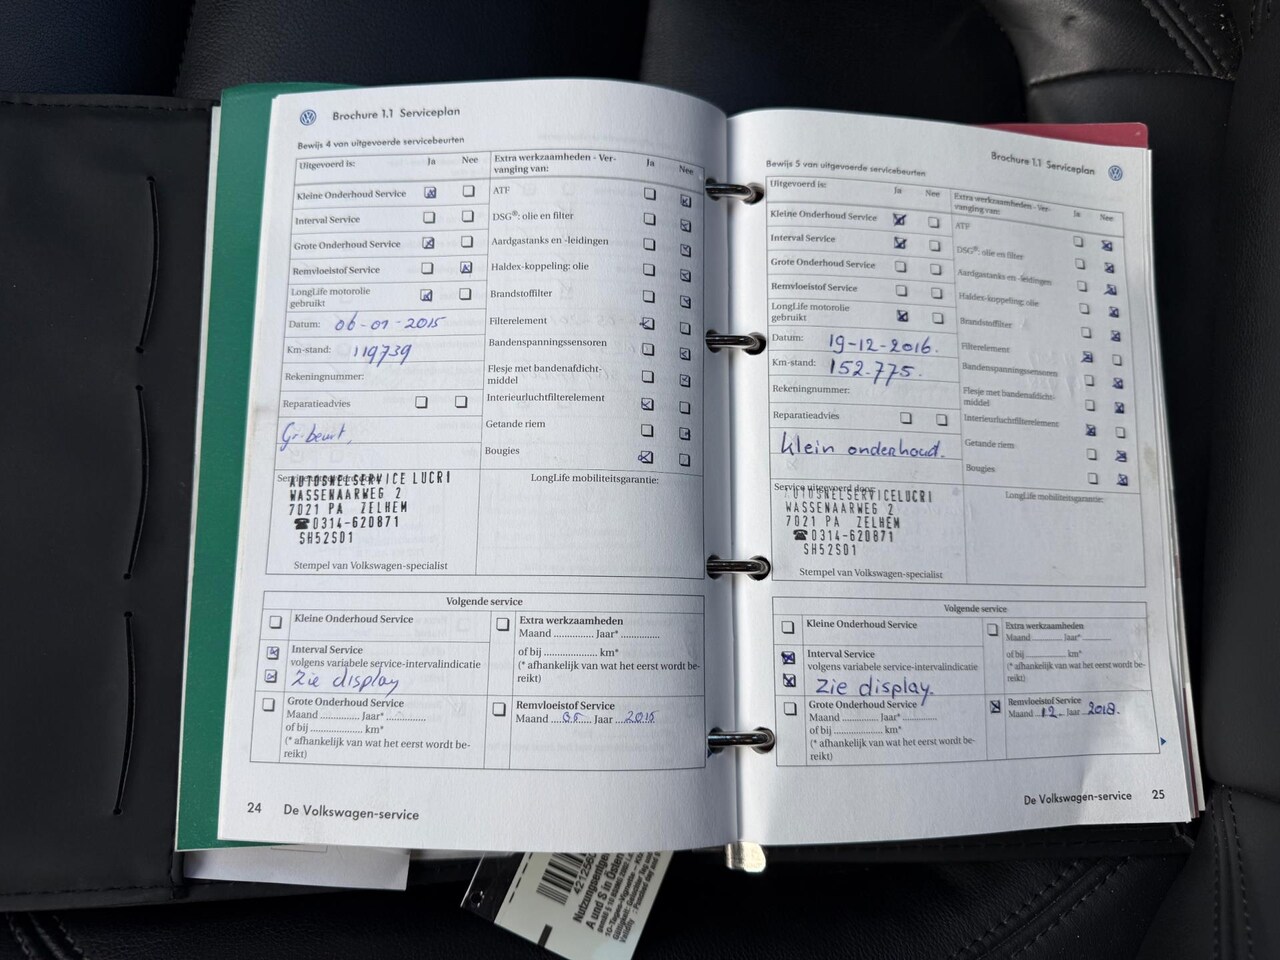 Brochure 1.1 Serviceplan
Bewijs 4 van uitgevoerde servicebeurten
Uitgevoerd is: Ja Nee
Kleine Onderhoud Service
Interval Service
Grote Onderhoud Service
Remvloeistof Service
LongLife motorolie
gebruikt
Datum: 06-01-2015
Km-stand: 119739
Rekeningnummer:
Reparatieadvies
Gr-beurt,
AUTOSNELSERVICE LUCRI
WASSENAARWEG 2
7021 PA ZELHEM
☎0314-620871
SH52S01
Stempel van Volkswagen-specialist
Extra werkzaamheden - Ver-
vanging van: Ja Nee
ATF
DSG®: olie en filter
Aardgastanks en -leidingen
Haldex-koppeling: olie
Brandstoffilter
Filterelement
Bandenspanningssensoren
Flesje met bandenafdicht-
middel
Interieurluchtfilterelement
Getande riem
Bougies
LongLife mobiliteitsgarantie:
Volgende service
Kleine Onderhoud Service
Interval Service
volgens variabele service-intervalindicatie
Zie display
Grote Onderhoud Service
Maand ............. Jaar* .............
of bij .................... km*
(* afhankelijk van wat het eerst wordt be-
reikt)
Extra werkzaamheden
Maand ............. Jaar* .............
of bij .................... km*
(* afhankelijk van wat het eerst wordt be-
reikt)
Remvloeistof Service
Maand 05 Jaar 2015
24 De Volkswagen-service
Brochure 1.1 Serviceplan
Bewijs 5 van uitgevoerde servicebeurten
Uitgevoerd is: Ja Nee
Kleine Onderhoud Service
Interval Service
Grote Onderhoud Service
Remvloeistof Service
LongLife motorolie
gebruikt
Datum: 19-12-2016.
Km-stand: 152.775.
Rekeningnummer:
Reparatieadvies
Klein onderhoud.
Service uitgevoerd door:
AUTOSNELSERVICELUCRI
WASSENAARWEG 2
7021 PA ZELHEM
☎0314-620871
SH52S01
Stempel van Volkswagen-specialist
Extra werkzaamheden - Ver-
vanging van: Ja Nee
ATF
DSG®: olie en filter
Aardgastanks en -leidingen
Haldex-koppeling: olie
Brandstoffilter
Filterelement
Bandenspanningssensoren
Flesje met bandenafdicht-
middel
Interieurluchtfilterelement
Getande riem
Bougies
LongLife mobiliteitsgarantie:
Volgende service
Kleine Onderhoud Service
Interval Service
volgens variabele service-intervalindicatie
Zie display.
Grote Onderhoud Service
Maand ............. Jaar* .............
of bij .................... km*
(* afhankelijk van wat het eerst wordt be-
reikt)
Extra werkzaamheden
Maand ............. Jaar* .............
of bij .................... km*
(* afhankelijk van wat het eerst wordt be-
reikt)
Remvloeistof Service
Maand 12 Jaar 2018.
De Volkswagen-service 25
A und S in Öster